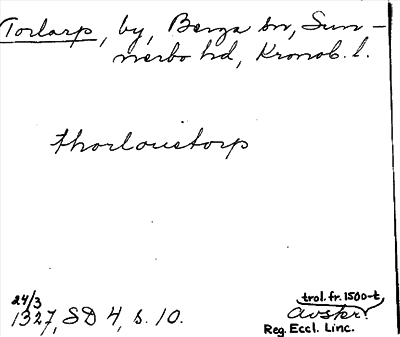 Torlarp, by, Berga sn, Sun-
nerbo hd, Kronob. l.
thorloustorp
24/3
1327, SD 4, s. 10.
trol. fr. 1500-t.
Avskr.
Reg. Eccl. Linc.